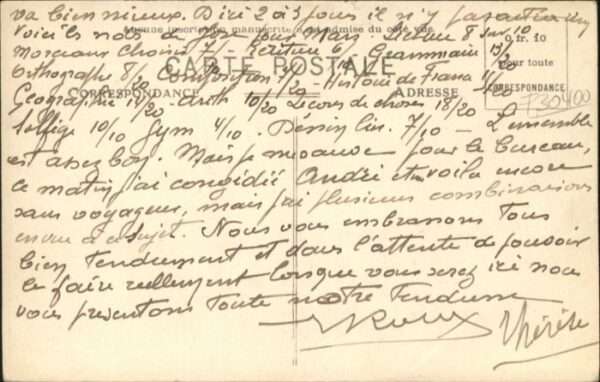 va bien mieux. D'ici 2 à 3 jours il n'y paraitra
Aucune inscription manuscrite n'est admise du côté
Voici les notes de pour Mars. Lecture 8 sur 10
0 fr. 10
Morceaux Choisis 7/ - Ecriture 6/ - Grammaire 13/20
Pour toute
Orthographe 8/ Composition /20 - Histoire de France 11/20
CARTE POSTALE
CORRESPONDANCE
ADRESSE
CORRESPONDANCE
730400
Géographie 14/20 - Arith 10/20 Leçons de choses 18/20
Solfège 10/10 Gym 4/10. Dessin lin. 7/10 - L'ensemble
est assez bon. Mais je me pour le bureau,
ce matin j'ai congédié André et me voilà encore
sans voyageur, mais j'ai plusieurs combinaisons
en vue à ce sujet. Nous vous embrassons tous
bien tendrement et dans l'attente de pouvoir
le faire réellement lorsque vous serez ici nous
vous présentons toute notre tendresse
Thérèse